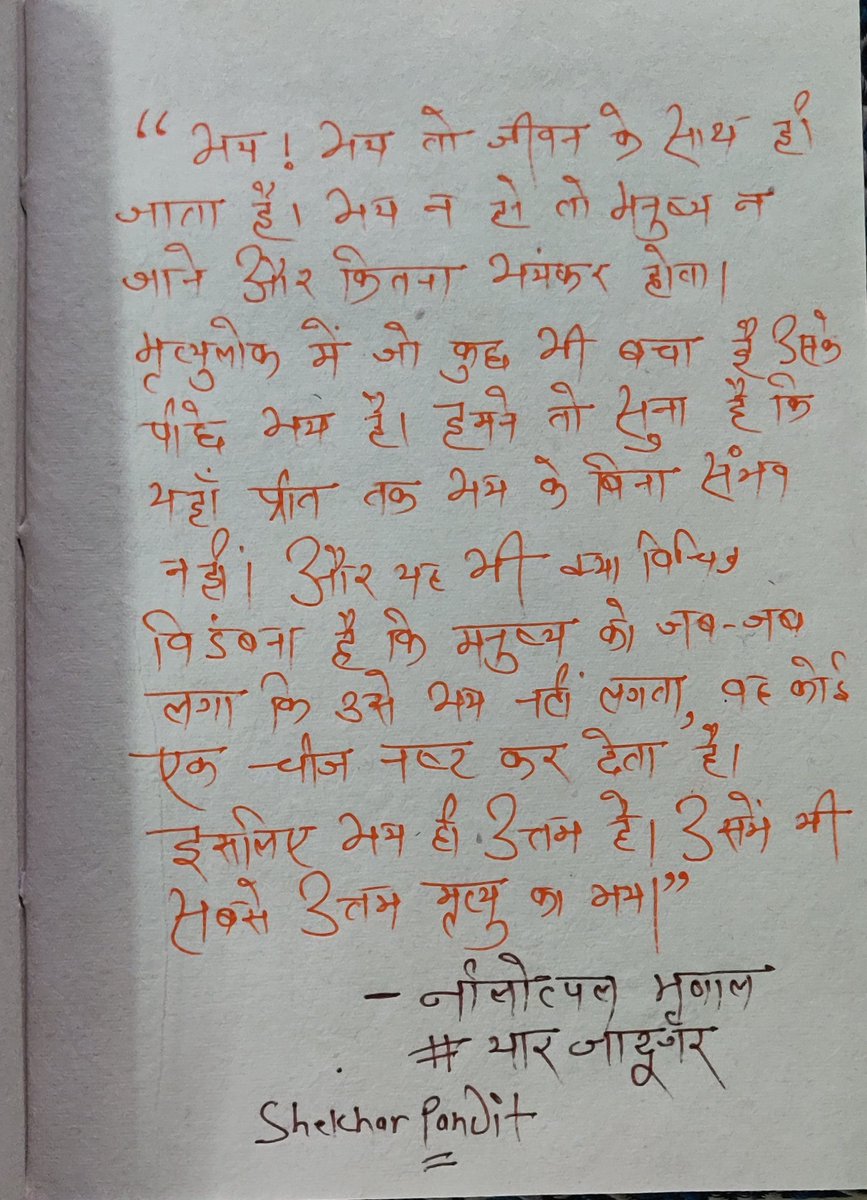 “ भय! भय तो जीवन के साथ ही
जाता है। भय न हो तो मनुष्य न
जाने और कितना भयंकर होता।
मृत्युलोक में जो कुछ भी बचा है उसके
पीछे भय है। हमने तो सुना है कि
यहाँ प्रीत तक भय के बिना संभव
नहीं। और यह भी क्या विचित्र
विडंबना है कि मनुष्य को जब-जब
लगा कि उसे भय नहीं लगता, वह कोई
एक चीज नष्ट कर देता है।
इसलिए भय ही उत्तम है। उसमें भी
सबसे उत्तम मृत्यु का भय।”
- नीलोत्पल मृणाल
# यार जादूगर
Shekhar Pandit